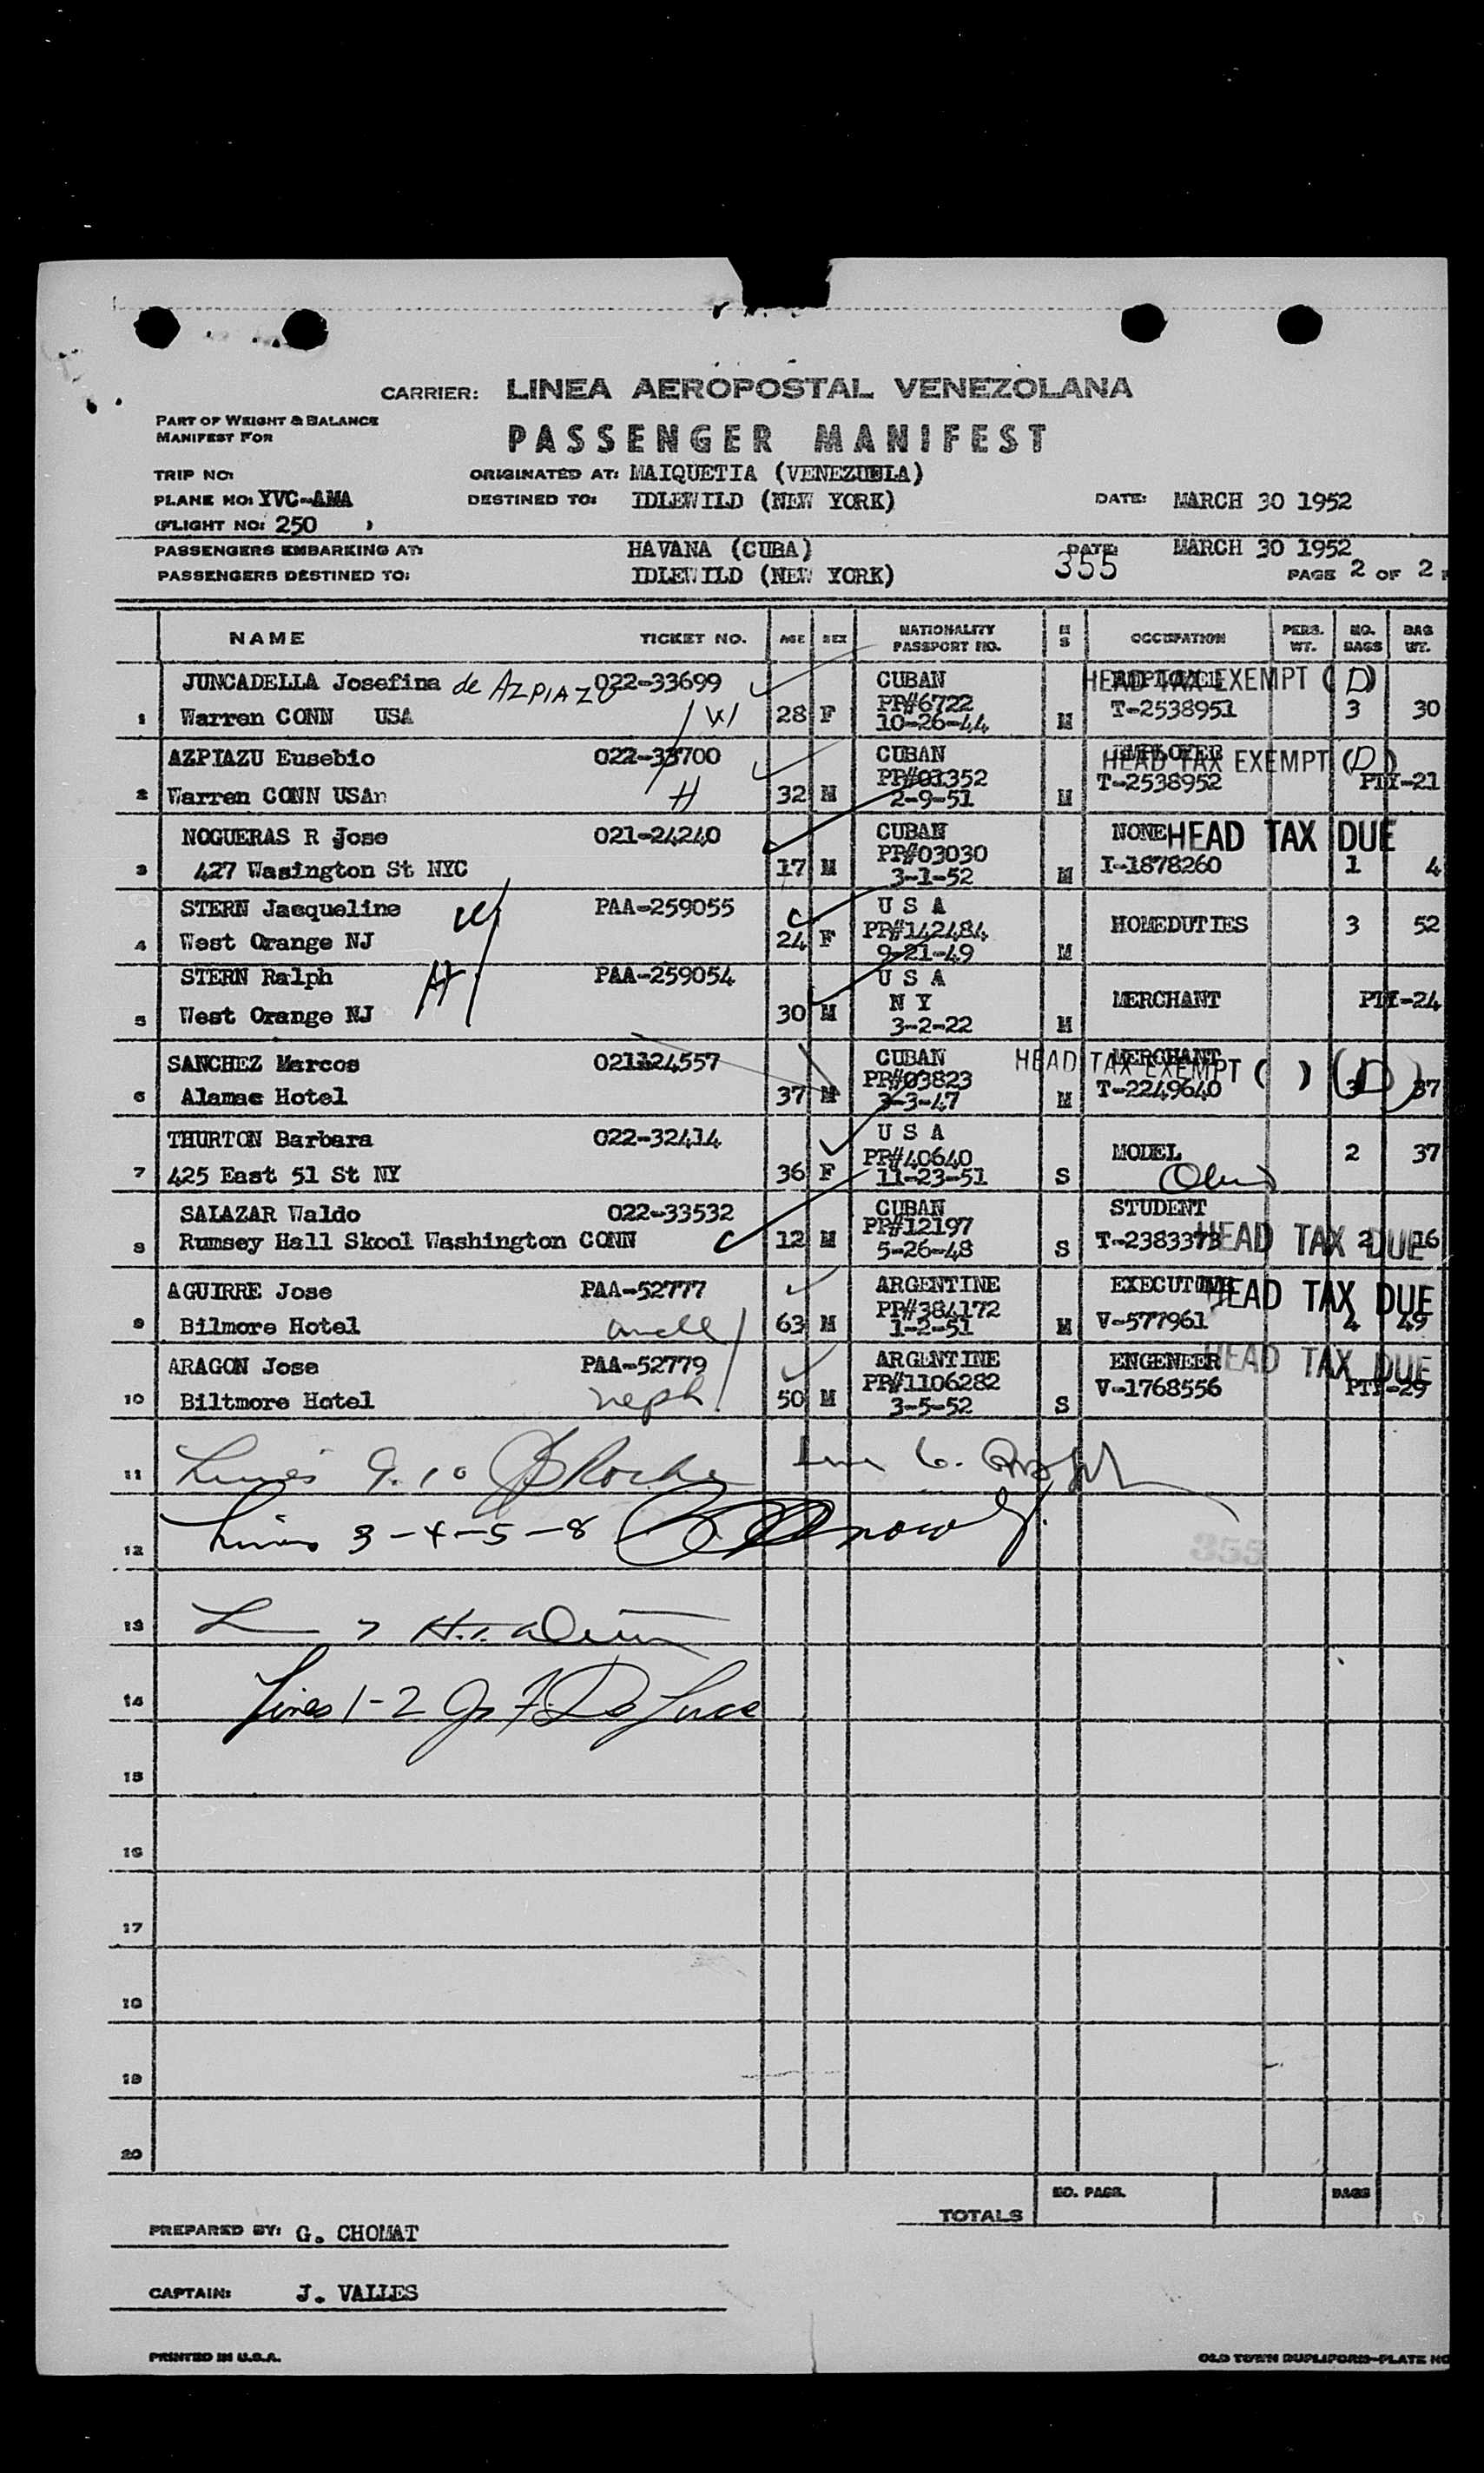 CARRIER: LINEA AEROPOSTAL VENEZOLANA
PART OF WEIGHT & BALANCE
MANIFEST FOR
PASSENGER MANIFEST
TRIP NO:
ORIGINATED AT: MAIQUETIA (VENEZUELA)
PLANE NO: YVC-AMA
DESTINED TO: IDLEWILD (NEW YORK)
DATE: MARCH 30 1952
(FLIGHT NO: 250 )
PASSENGERS EMBARKING AT: HAVANA (CUBA)
DATE: MARCH 30 1952
355
PASSENGERS DESTINED TO: IDLEWILD (NEW YORK)
PAGE 2 OF 2
NAME TICKET NO. AGE SEX NATIONALITY PASSPORT NO. M S OCCUPATION PERS. WT. NO. BAGS BAG WT.
JUNCADELLA Josefina de AZPIAZU 022-33699 CUBAN HEAD TAX EXEMPT (D)
1 Warren CONN USA W 28 F PP#6722 10-26-44 M T-2538951 3 30
AZPIAZU Eusebio 022-33700 CUBAN EMPLOYER HEAD TAX EXEMPT (D)
2 Warren CONN USAn H 32 M PP#01352 2-9-51 M T-2538952 PTY-21
NOGUERAS R Jose 021-24240 CUBAN NONE HEAD TAX DUE
3 427 Wasington St NYC 17 M PP#03030 3-1-52 M I-1878260 1 4
STERN Jacqueline W PAA-259055 U S A
4 West Orange NJ 24 F PP#142484 9-21-49 M HOMEDUTIES 3 52
STERN Ralph H PAA-259054 U S A
5 West Orange NJ 30 M N Y 3-2-22 M MERCHANT PTY-24
SANCHEZ Marcos 021124557 CUBAN MERCHANT HEAD TAX EXEMPT ( ) (D)
6 Alamac Hotel 37 M PP#03823 3-3-47 M T-2249640 3 37
THURTON Barbara 022-32414 U S A
7 425 East 51 St NY 36 F PP#40640 11-23-51 S MODEL 2 37
SALAZAR Waldo 022-33532 CUBAN STUDENT
8 Rumsey Hall Skool Washington CONN 12 M PP#12197 5-26-48 S T-2383373 HEAD TAX DUE 2 16
AGUIRRE Jose PAA-52777 ARGENTINE EXECUTIVE HEAD TAX DUE
9 Bilmore Hotel uncle 63 M PP#384172 1-2-51 M V-577961 4 49
ARAGON Jose PAA-52779 ARGENTINE ENGENEER HEAD TAX DUE
10 Biltmore Hotel neph 50 M PP#1106282 3-5-52 S V-1768556 PTY-29
11 Lines 9.10 Line 6.
12 Lines 3-4-5-8
355
13
14 Lines 1-2 F. De Luca
15
16
17
18
19
20
NO. PASS. BAGS
TOTALS
PREPARED BY: G. CHOMAT
CAPTAIN: J. VALLES
PRINTED IN U.S.A.
OLD TOWN DUPLIFORM-PLATE NO